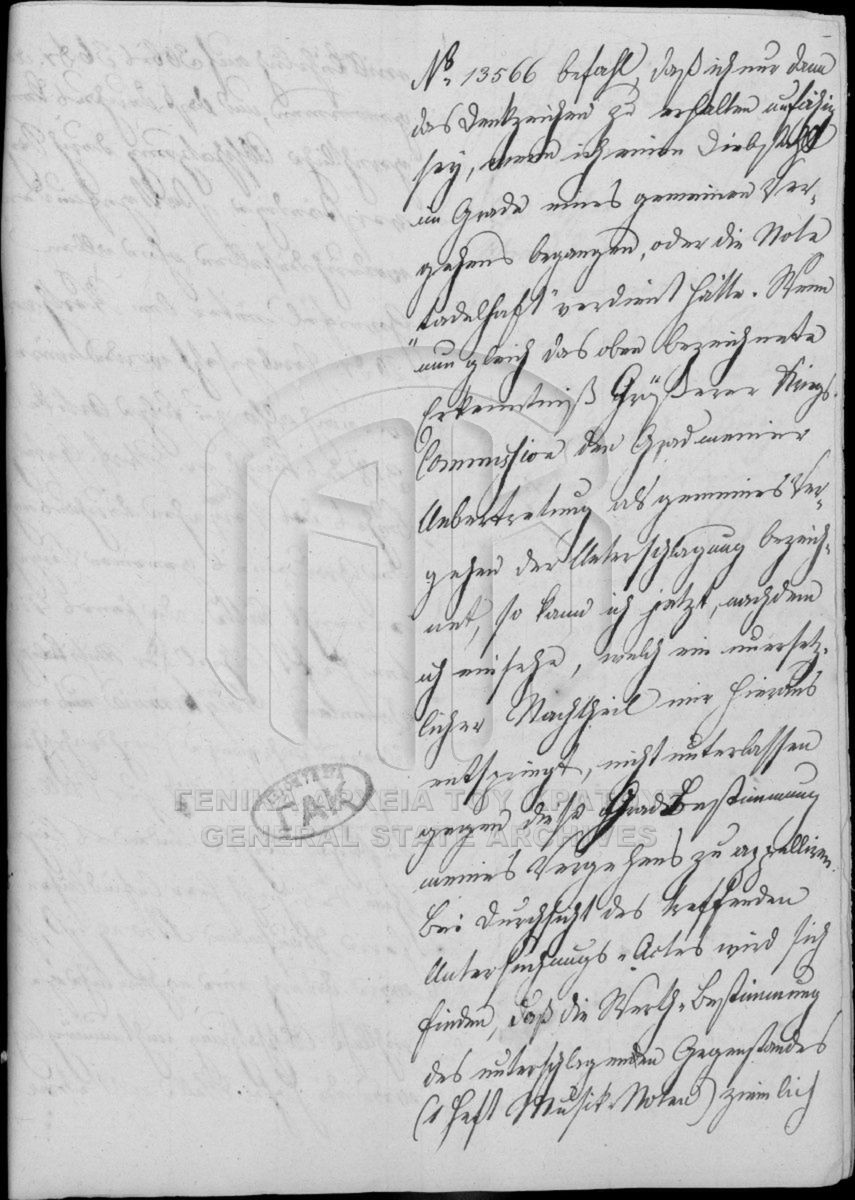 No 13566 befahl, daß ich nur dann
das Denkzeichen zu erhalten unfähig
sey, wenn ich einen Diebstahl
im Grade eines gemeinen Ver-
gehens begangen, oder die Note
"tadelhaft" verdient hätte. Wenn
nun gleich das oben bezeichnete
Erkenntniß Größerer Kriegs-
Commission den Grad meiner
Uebertretung als gemeines Ver-
gehen der Unterschlagung bezeich-
net, so kann ich jetzt, nachdem
ich einsehe, welch ein unersetz-
licher Nachtheil mir hieraus
entspringt, nicht unterlassen
gegen diese Grads Bestimmung
meines Vergehens zu appelliren.
Bei Durchsicht des treffenden
Untersuchungs-Actes wird sich
finden, daß die Werth-Bestimmung
des unterschlagenden Gegenstandes
(1 Heft Musik-Noten) ziemlich
ΓΕΝΙΚΑ ΑΡΧΕΙΑ ΤΟΥ ΚΡΑΤΟΥΣ
GENERAL STATE ARCHIVES
ΓΑΚ